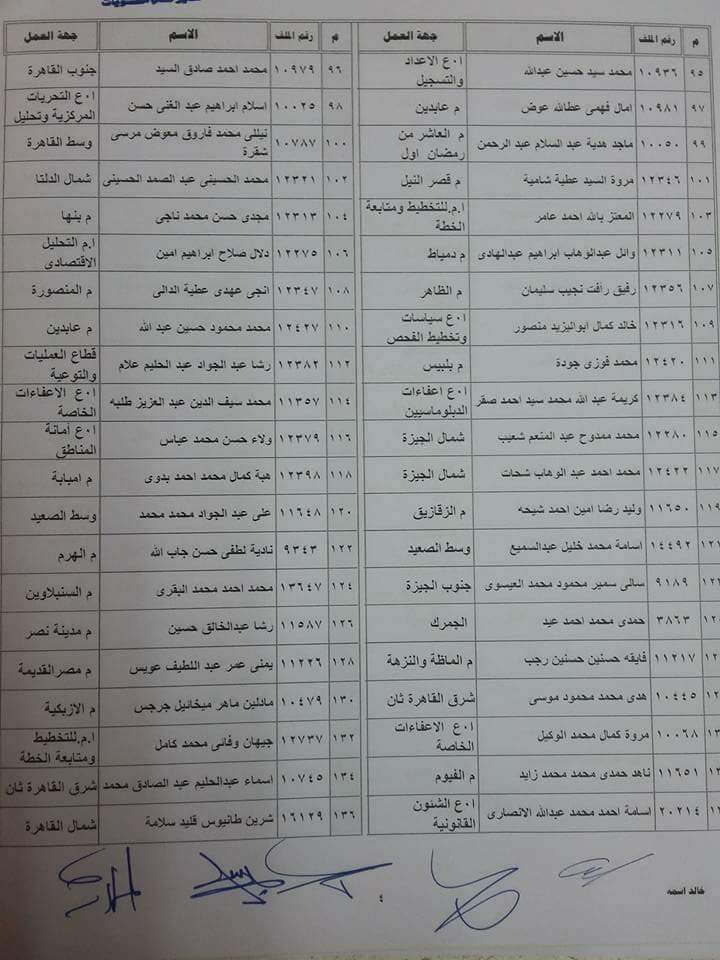 م رقم الملف الاسم جهة العمل
٩٥ ١٠٩٣٦ محمد سيد حسين عبدالله ا٠ع الاعداد والتسجيل
٩٧ ١٠٩٨١ امال فهمى عطالله عوض م عابدين
٩٩ ١٠٠٥٠ ماجد هدية عبد السلام عبد الرحمن م العاشر من رمضان اول
١٠١ ١٢٣٤٦ مروة السيد عطية شامية م قصر النيل
١٠٣ ١٢٢٧٩ المعتز بالله احمد عامر ا.م.للتخطيط ومتابعة الخطة
١٠٥ ١٢٣١١ وائل عبدالوهاب ابراهيم عبدالهادى م دمياط
١٠٧ ١٢٣٥٦ رفيق رأفت نجيب سليمان م الظاهر
١٠٩ ١٢٣١٦ خالد كمال ابواليزيد منصور ا٠ع سياسات وتخطيط الفحص
١١١ ١٢٤٢٠ محمد فوزى جودة م بلبيس
١١٣ ١٢٣٨٤ كريمة عبد الله محمد سيد احمد صقر ا٠ع اعفاءات الدبلوماسيين
١١٥ ١٢٢٨٠ محمد ممدوح عبد المنعم شعيب شمال الجيزة
١١٧ ١٢٤٢٢ محمد احمد عبد الوهاب شحات شمال الجيزة
١١٩ ١١٦٥٠ وليد رضا امين احمد شيحه م الزقازيق
١٤٤٩٢ اسامة محمد خليل عبدالسميع وسط الصعيد
٩١٨٩ سالى سمير محمود محمد العيسوى جنوب الجيزة
٣٨٦٣ حمدى محمد احمد عيد الجمرك
١١٢١٧ فايقه حسنين حسنين رجب م الماظة والنزهة
١٠٤٤٥ هدى محمد محمود موسى شرق القاهرة ثان
١٠٠٦٨ مروة كمال محمد الوكيل ا٠ع الاعفاءات الخاصة
١١٦٥١ ناهد حمدى محمد محمد زايد م الفيوم
٢٠٢١٤ اسامة احمد محمد عبدالله الانصارى ا٠ع الشئون القانونية
م رقم الملف الاسم جهة العمل
٩٦ ١٠٩٧٩ محمد احمد صادق السيد جنوب القاهرة
٩٨ ١٠٠٢٥ اسلام ابراهيم عبد الغنى حسن ا٠ع التحريات المركزية وتحليل
١٠٠ ١٠٧٨٧ نيللى محمد فاروق معوض مرسى شقرة وسط القاهرة
١٠٢ ١٢٣٢١ محمد الحسينى عبد الصمد الحسينى شمال الدلتا
١٠٤ ١٢٣١٣ مجدى حسن محمد ناجى م بنها
١٠٦ ١٢٢٧٥ دلال صلاح ابراهيم امين ا.م التحليل الاقتصادى
١٠٨ ١٢٣٤٧ انجى عهدى عطية الدالى م المنصورة
١١٠ ١٢٤٢٧ محمد محمود حسين عبد الله م عابدين
١١٢ ١٢٣٨٢ رشا عبد الجواد عبد الحليم علام قطاع العمليات والتوعية
١١٤ ١١٣٥٧ محمد سيف الدين عبد العزيز طلبه ا٠ع الاعفاءات الخاصة
١١٦ ١٢٣٧٩ ولاء حسن محمد عباس ا٠ع أمانة المناطق
١١٨ ١٢٣٩٨ هبة كمال محمد احمد بدوى م امبابة
١٢٠ ١١٦٤٨ على عبد الجواد محمد محمد وسط الصعيد
١٢٢ ٩٣٤٣ نادية لطفى حسن جاب الله م الهرم
١٢٤ ١٣٦٤٧ محمد احمد محمد البقرى م السنبلاوين
١٢٦ ١١٥٨٧ رشا عبدالخالق حسين م مدينة نصر
١٢٨ ١١٢٢٦ يمنى عمر عبد اللطيف عويس م مصرالقديمة
١٣٠ ١٠٤٧٩ مادلين ماهر ميخائيل جرجس م الازبكية
١٣٢ ١٢٧٣٧ جيهان وفائى محمد كامل ا.م.للتخطيط ومتابعة الخطة
١٣٤ ١٠٧٤٥ اسماء عبدالحليم عبد الصادق محمد شرق القاهرة ثان
١٣٦ ١٦١٢٩ شرين طانيوس قليد سلامة شمال القاهرة
خالد اسمه
٤